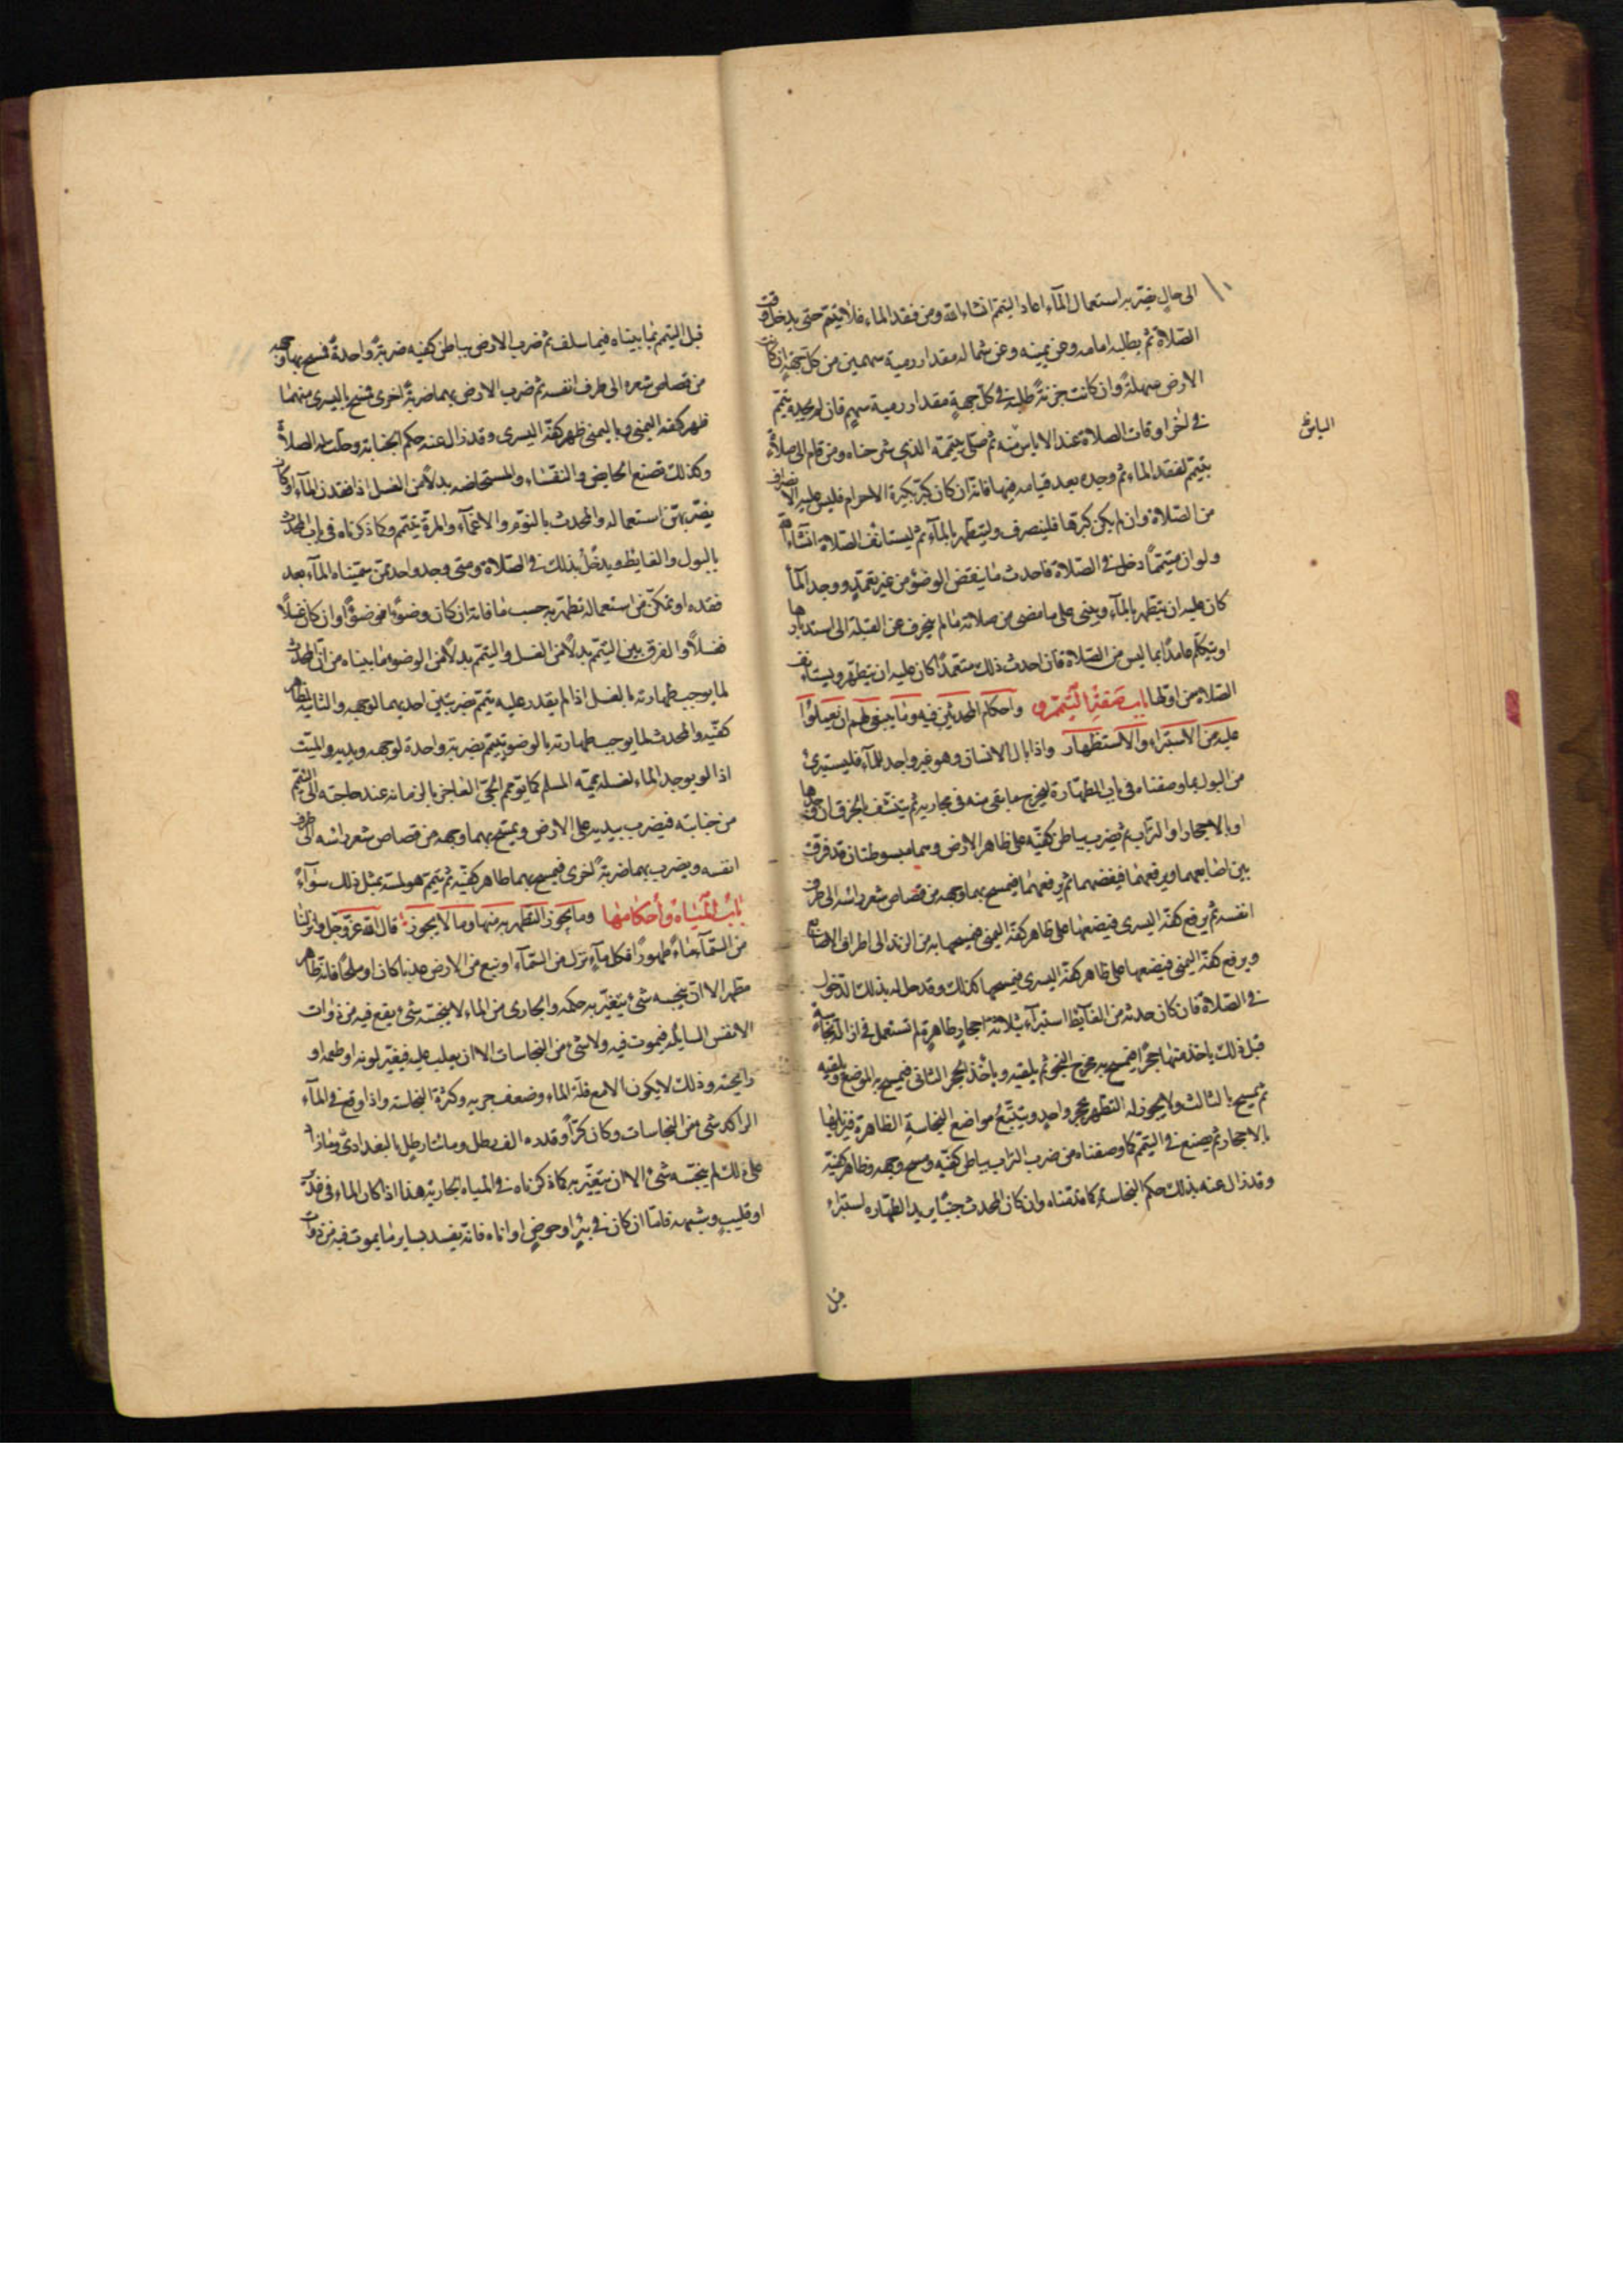 ١٠
الى حالٍ يضرّ به استعمال المآء اعاد التيمّم انشاء الله ومن فقد الماء فلا يتيمّم حتى يدخل وقت
الصّلاة ثم يطلبه امامه وعن يمينه وعن شماله مقدار رمية سهمين من كل جهةٍ ان كانت
الارض سهلةً وان كانت حزنةً طلبه في كلّ جهةٍ مقدار رمية سهمٍ فان لم يجده تيمّم
في اخر اوقات الصلاة عند الاياس منه ثم صلى بتيممه الذي شرحناه ومن قام الى صلاةٍ
الياس
بتيمّم لفقد الماء ثم وجده بعد قيامه فيها فانه ان كان كبّر تكبيرة الاحرام فليس عليه الانصراف
من الصّلاة وان لم يكن كبرها فلينصرف وليتطهّر بالمآء ثم ليستانف الصّلاة انشاء الله
ولو ان متيمّمًا دخل في الصّلاة فاحدث ما ينقض الوضوء من غير تعمّدٍ ووجد المآء
كان عليه ان يتطهر بالمآء ويبنى على ما مضى من صلاته ما لم ينحرف عن القبلة الى استدبارها
او يتكلّم عامدًا بما ليس من الصّلاة فان احدث ذلك متعمّدًا كان عليه ان يتطهّر ويستانف
الصّلاة من اوّلها باب صفة التيمم و واحكام المحدثين فيه وما ينبغي لهم ان يعملوا
عليه من الاستبراء والاستظهار واذا بال الانسان وهو غير واجد للمآء فليستبرئ
من البول بما وصفناه في باب الطهارة ليخرج ما بقى منه في مجاريه ثم يتنشف بالخرق ان وجدها
او بالاحجار او التراب ثم يضرب بباطن كفيّه على ظاهر الارض وهما مبسوطتان قد فرق
بين اصابعهما ويرفعهما فينفضهما ثم يرفعهما فيمسح بهما وجهه من قصاص شعر راسه الى طرف
انفسه ثم يرفع كفّه اليسرى فيضعها على ظاهر كفّه اليمنى فيمسحها به من الزند الى اطراف الاصابع
ويرفع كفّه اليمنى فيضعها على ظاهر كفّه اليسرى فيمسحها كذلك وقد حل له بذلك الدخول
في الصّلاة فان كان حدثه من الغايط استبرآء بثلاثة احجارٍ طاهرةٍ لم تستعمل في ازالة نجاسةٍ
قبل ذلك ياخذ منها حجرًا فيمسح به مخرج النجو ثم يلقيه وياخذ الحجر الثانى فيمسح به الموضع ويلقيه
ثم يمسح بالثالث ولا يجوز له التطهر بحجرٍ واحدٍ ويتتبّع مواضع النجاسة الظاهرة فيزيلها
بالاحجار ثم يصنع في التيمّم كما وصفناه من ضرب التراب بباطن كفيّه ومسح وجهه وظاهر كفيّه
وقد زال عنه بذلك حكم النجاسة كما قدّمناه وان كان المحدث جنبًا يريد الطهارة استبراء
قبل
قبل التيمم بما بيناه فيما سلف ثم ضرب الارض بباطن كفيه ضربةً واحدةً فمسح بهما وجهه
من قصاص شعره الى طرف انفسه ثم ضرب الارض بهما ضربةً اخرى فمسح باليسرى منهما
ظهر كفه اليمنى وباليمنى ظهر كفّه اليسرى وقد زال عنه حكم الجنابة وحلّت له الصلاةُ
وكذلك تصنع الحايض والنفساء والمستحاضه بدلاً من الغسل اذا فقدن المآء او كان
يضرّ بهنّ استعماله والمحدث بالنوّم والاغمآء والمرّة يتيمّم كما ذكرناه في باب المحدث
بالبول والغايط ويدخل بذلك في الصّلاة ومتى وجد واحد ممّن سمّيناه المآء بعد
فقده او تمكّن من استعماله تطهّر به حسب ما فاته ان كان وضوءًا فوضوءًا وان كان غسلًا
فغسلًا والفرق بين التيمّم بدلًا من الغسل والتيمّم بدلًا من الوضوء ما بيناه من ان المحدث
لما يوجب طهارته بالغسل اذا لم يقدر عليه يتيمّم ضربتين احديهما لوجهه والثانية لظاهر
كفيّه والمحدث لما يوجب طهارته بالوضوء يتيمّم بضربة واحدة لوجهه ويديه والميّت
اذا لم يوجد الماء لغسله يمّمه المسلم كما يوَمّم الحيّ العاجز بالزمانه عند حاجته الى التيمّم
من جنابته فيضرب بيديه على الارض ويمسح بهما وجهه من قصاص شعر راسه الى طرف
انفسه ويضرب بهما ضربةً اخرى فيمسح بهما ظاهر كفيّه ثم يتيمّم هو لمسّه بمثل ذلك سوآءً
باب المياه وأحكامها وما يجوز التطهر به منها وما لا يجوز قال الله عزّ وجلّ وانزلنا
من السّمآء ماءً طهورًا فكل مآءٍ نزل من السّمآء او نبع من الارض عذبا كان او ملحًا فانه طاهر
مطهر الا ان ينجسه شئ يتغيّر به حكمه والجارى من الماء لا ينجّسه شئ يقع فيه من ذوات
الانفس السايلة فيموت فيه ولا شئ من النجاسات الا ان يغلب عليه فيغيّر لونه او طعمه او
رايحته وذلك لا يكون الا مع قلّة الماء وضعف جريه وكثرة النجاسة واذا وقع في المآء
الراكد شئ من النجاسات وكان كرًّا وقدره الف رطل ومائتا رطلٍ بالبغدادىّ وما زاد
على ذلك لم ينجّسه شئ الا ان يتغيّر به كما ذكرناه في المياه الجارية هذا اذا كان الماء في غديرٍ
او قليبٍ وشبهه فامّا ان كان في بئرٍ او حوضٍ او اناء فانه يفسد بساير ما يموت فيه من ذوات